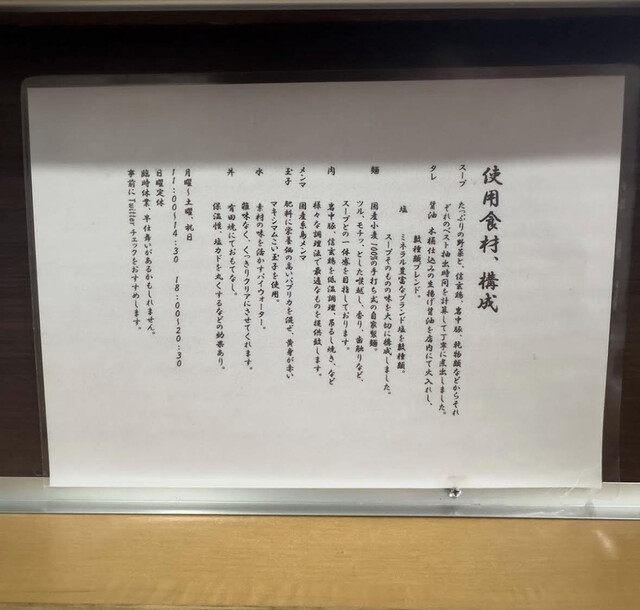 使用食材、構成
スープ　たっぷりの野菜と、信玄鶏、岩中豚、乾物類などからそれ
ぞれのベスト抽出時間を計算して丁寧に煮出しました。
タレ　醤油　木桶仕込みの生揚げ醤油を店内にて火入れし、
数種類ブレンド。
塩　ミネラル豊富なブランド塩を数種類。
スープそのものの味を大切に構成しました。
麺　国産小麦100%の手打ち式の自家製麺。
ツル、モチッ、とした喉越し、香り、歯触りなど、
スープとの一体感を目指しております。
肉　岩中豚、信玄鶏を低温調理、吊るし焼き、など
様々な調理法で最適なものを提供致します。
メンマ　国産糸島メンマ
玉子　肥料に栄養価の高いパプリカを混ぜ、黄身が赤い
マキシマムこい玉子を使用。
水　素材の味を活かすパイウォーター。
雑味なく、くっきりクリアにさせてくれます。
丼　有田焼にておもてなし。
保温性、塩カドを丸くするなどの効果あり。
月曜〜土曜、祝日
11:00〜14:30　18:00〜20:30
日曜定休
臨時休業、早仕舞いがあるかもしれません。
事前にTwitterチェックをおすすめします。